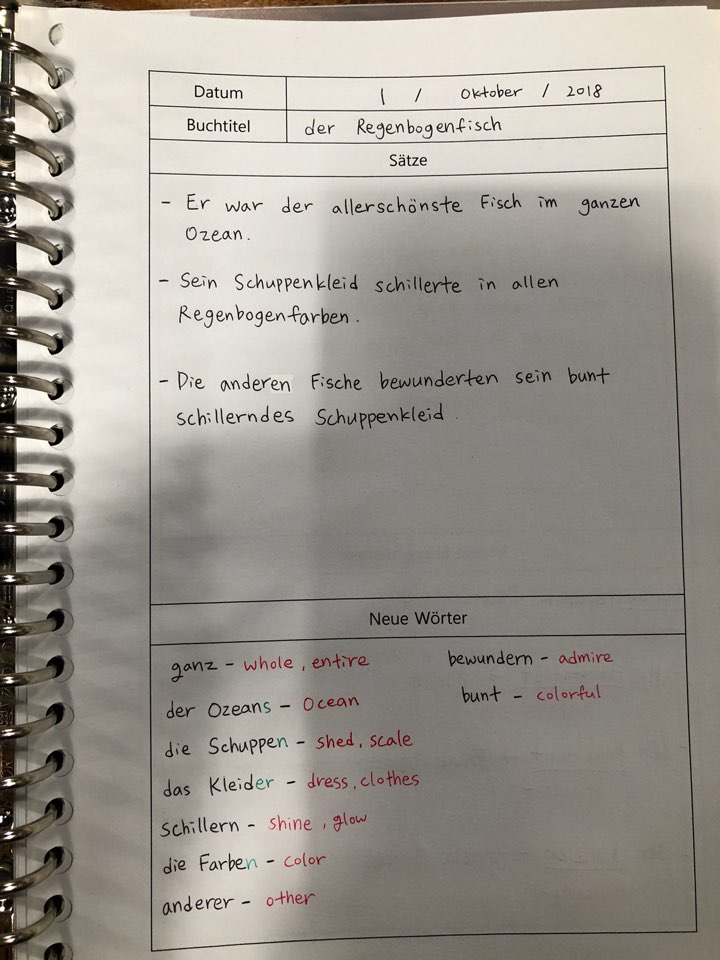 Datum 1 / Oktober / 2018
Buchtitel der Regenbogenfisch
Sätze
- Er war der allerschönste Fisch im ganzen
Ozean.
- Sein Schuppenkleid schillerte in allen
Regenbogenfarben.
- Die anderen Fische bewunderten sein bunt
schillerndes Schuppenkleid.
Neue Wörter
ganz - whole, entire
der Ozeans - Ocean
die Schuppen - shed, scale
das Kleider - dress, clothes
schillern - shine, glow
die Farben - color
anderer - other
bewundern - admire
bunt - colorful